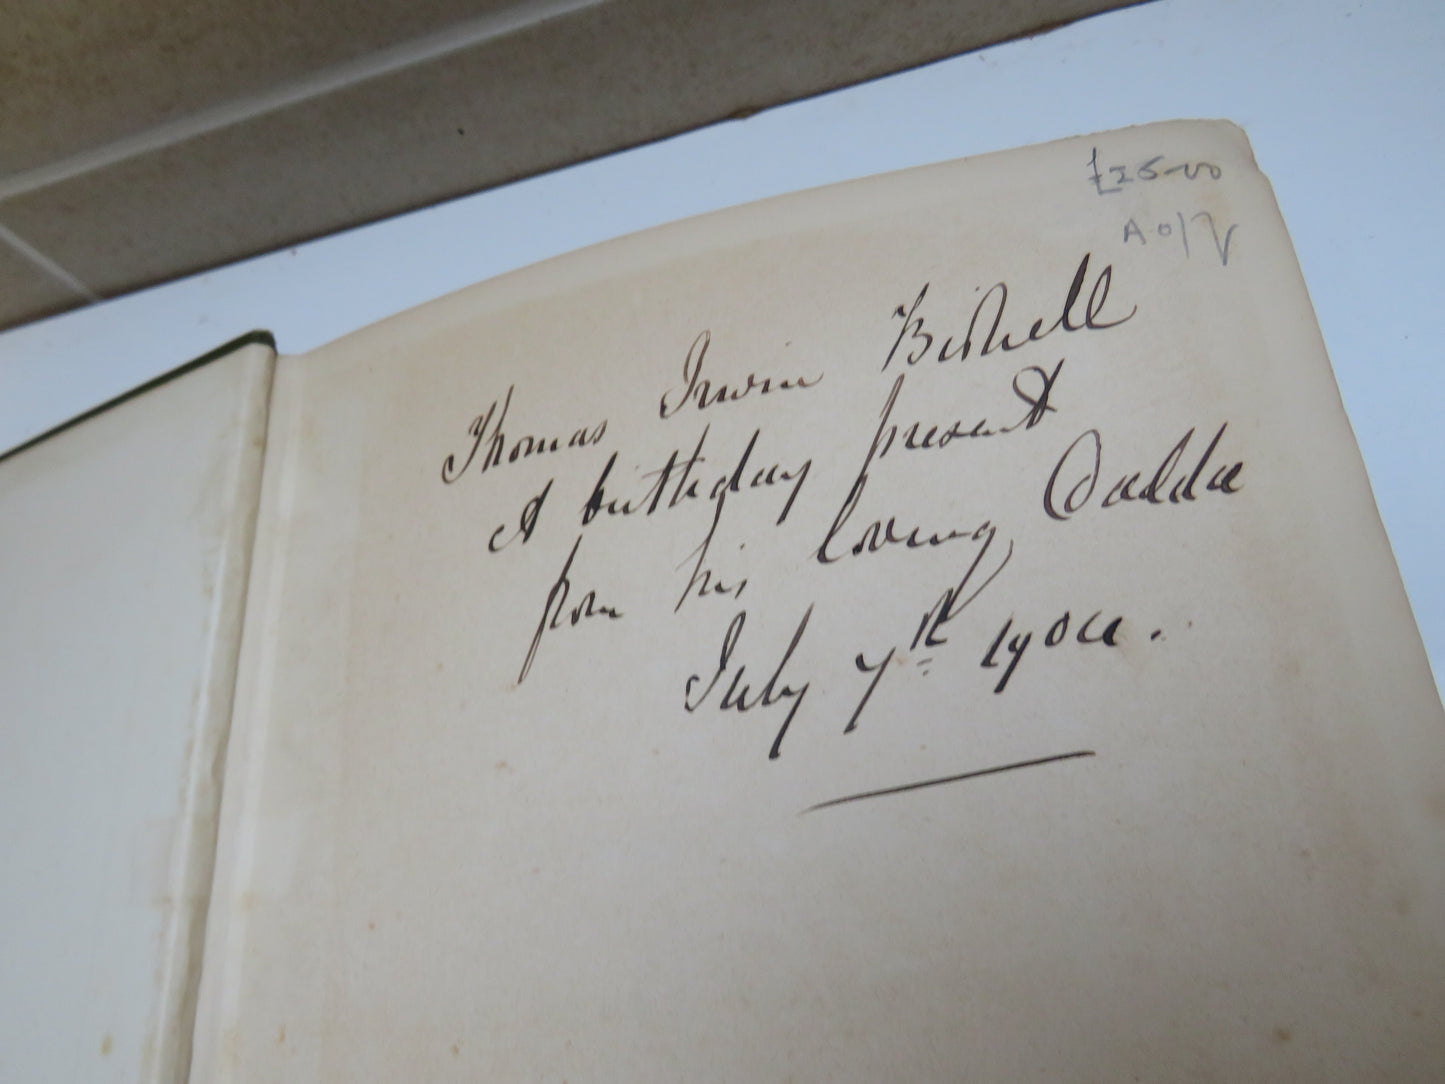 £25-00
A 0/
Thomas Irwin Birkell
A birthday present
from his loving Dadda
July 7th 1904.